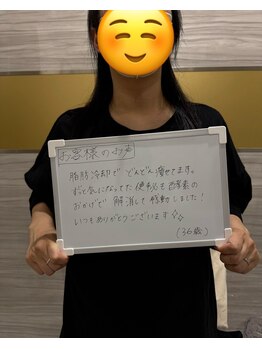 お客様のお声
脂肪冷却で どんどん痩せてます。
ずっと気になってた便秘も酵素の
おかげで 解消して感動しました!
いつもありがとうございます
(36歳)